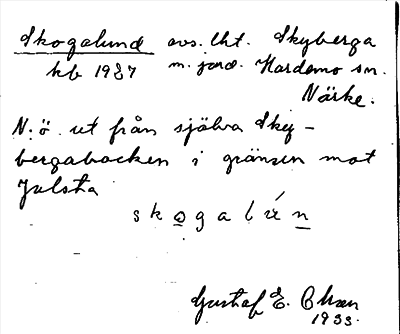 Skogalund avs. lht. Skyberga
kb 1937 m. jord. Hardemo sn.
Närke.
N:ö. ut från själva Sky-
bergabacken i gränsen mot
Julsta
skogalún
Gustaf E. Olsson
1933.